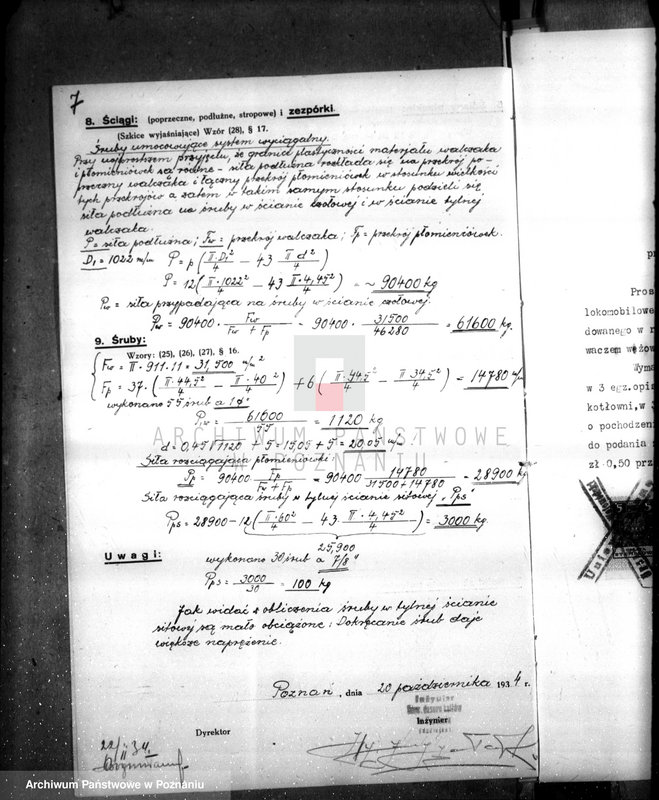 7
8. Ściągi: (poprzeczne, podłużne, stropowe) i zezpórki.
(Szkice wyjaśniające) Wzór (28), § 17.
Śruby umocowujące system wyciągalny.
Przy uproszczem przyjęciu, że granica plastyczności materjału walczaka
i płomieniówek są rodne - siła podłużna rozkłada się na przekrój po-
przeczny walczaka i łączny przekrój płomieniówek w stosunku wielkości
tych przekrojów a zatem w takim samym stosunku podzieli się
siła podłużna na śruby w ścianie czołowej i w ścianie tylnej
walczaka.
P = siła podłużna; Fw = przekrój walczaka; Fp = przekrój płomieniówek.
D₁ = 1022 m/m P = p (π D₁²/4 - 43 π d²/4)
P = 12 (π·1022²/4 - 43 π·4,45²/4) = ~ 90400 kg
Pw = siła przypadająca na śruby w ścianie czołowej.
Pw = 90400 · Fw/(Fw + Fp) - 90400 · 31500/46280 = 61600 kg.
9. Śruby:
Wzory: (25), (26), (27), § 16.
Fw = π · 911 · 11 = 31,500 m/m²
Fp = 37 · (π·44,5²/4 - π·40²/4) + 6 (π·44,5²/4 - π 34,5²/4) = 14780 m/m
wykonano 55 śrub a 1"
61600/55 = 1120 kg
d = 0,45 √1120 + 5 = 15,05 + 5 = 20,05 m/m
Siła rozciągająca płomieniówki:
Pp = 90400 Fp/(Fw + Fp) = 90400 14780/(31500 + 14780) = 28900 kg
Siła rozciągająca śruby w tylnej ścianie sitowej, Pps
Pps = 28900 - 12 (π·60²/4 - 43 · π·4,45²/4) = 3000 kg
25,900
Uwagi:
wykonano 30 śrub a 7/8"
Pps = 3000/30 = 100 kg
Jak widać z obliczenia śruby w tylnej ścianie
sitowej są mało obciążone; Dokręcanie śrub daje
większe naprężenie.
Poznań, dnia 20 października 1934 r.
Inżynier
Inżynier
Dyrektor
ARCHIWUM PAŃSTWOWE
W POZNANIU
Pros
lokomobilowe
dowanego w r
waczem wężow
Wyma
w 3 egz.opis
kotłowni, w 3
o pochodzeni
do podania s
zł 0,50 prz
Archiwum Państwowe w Poznaniu